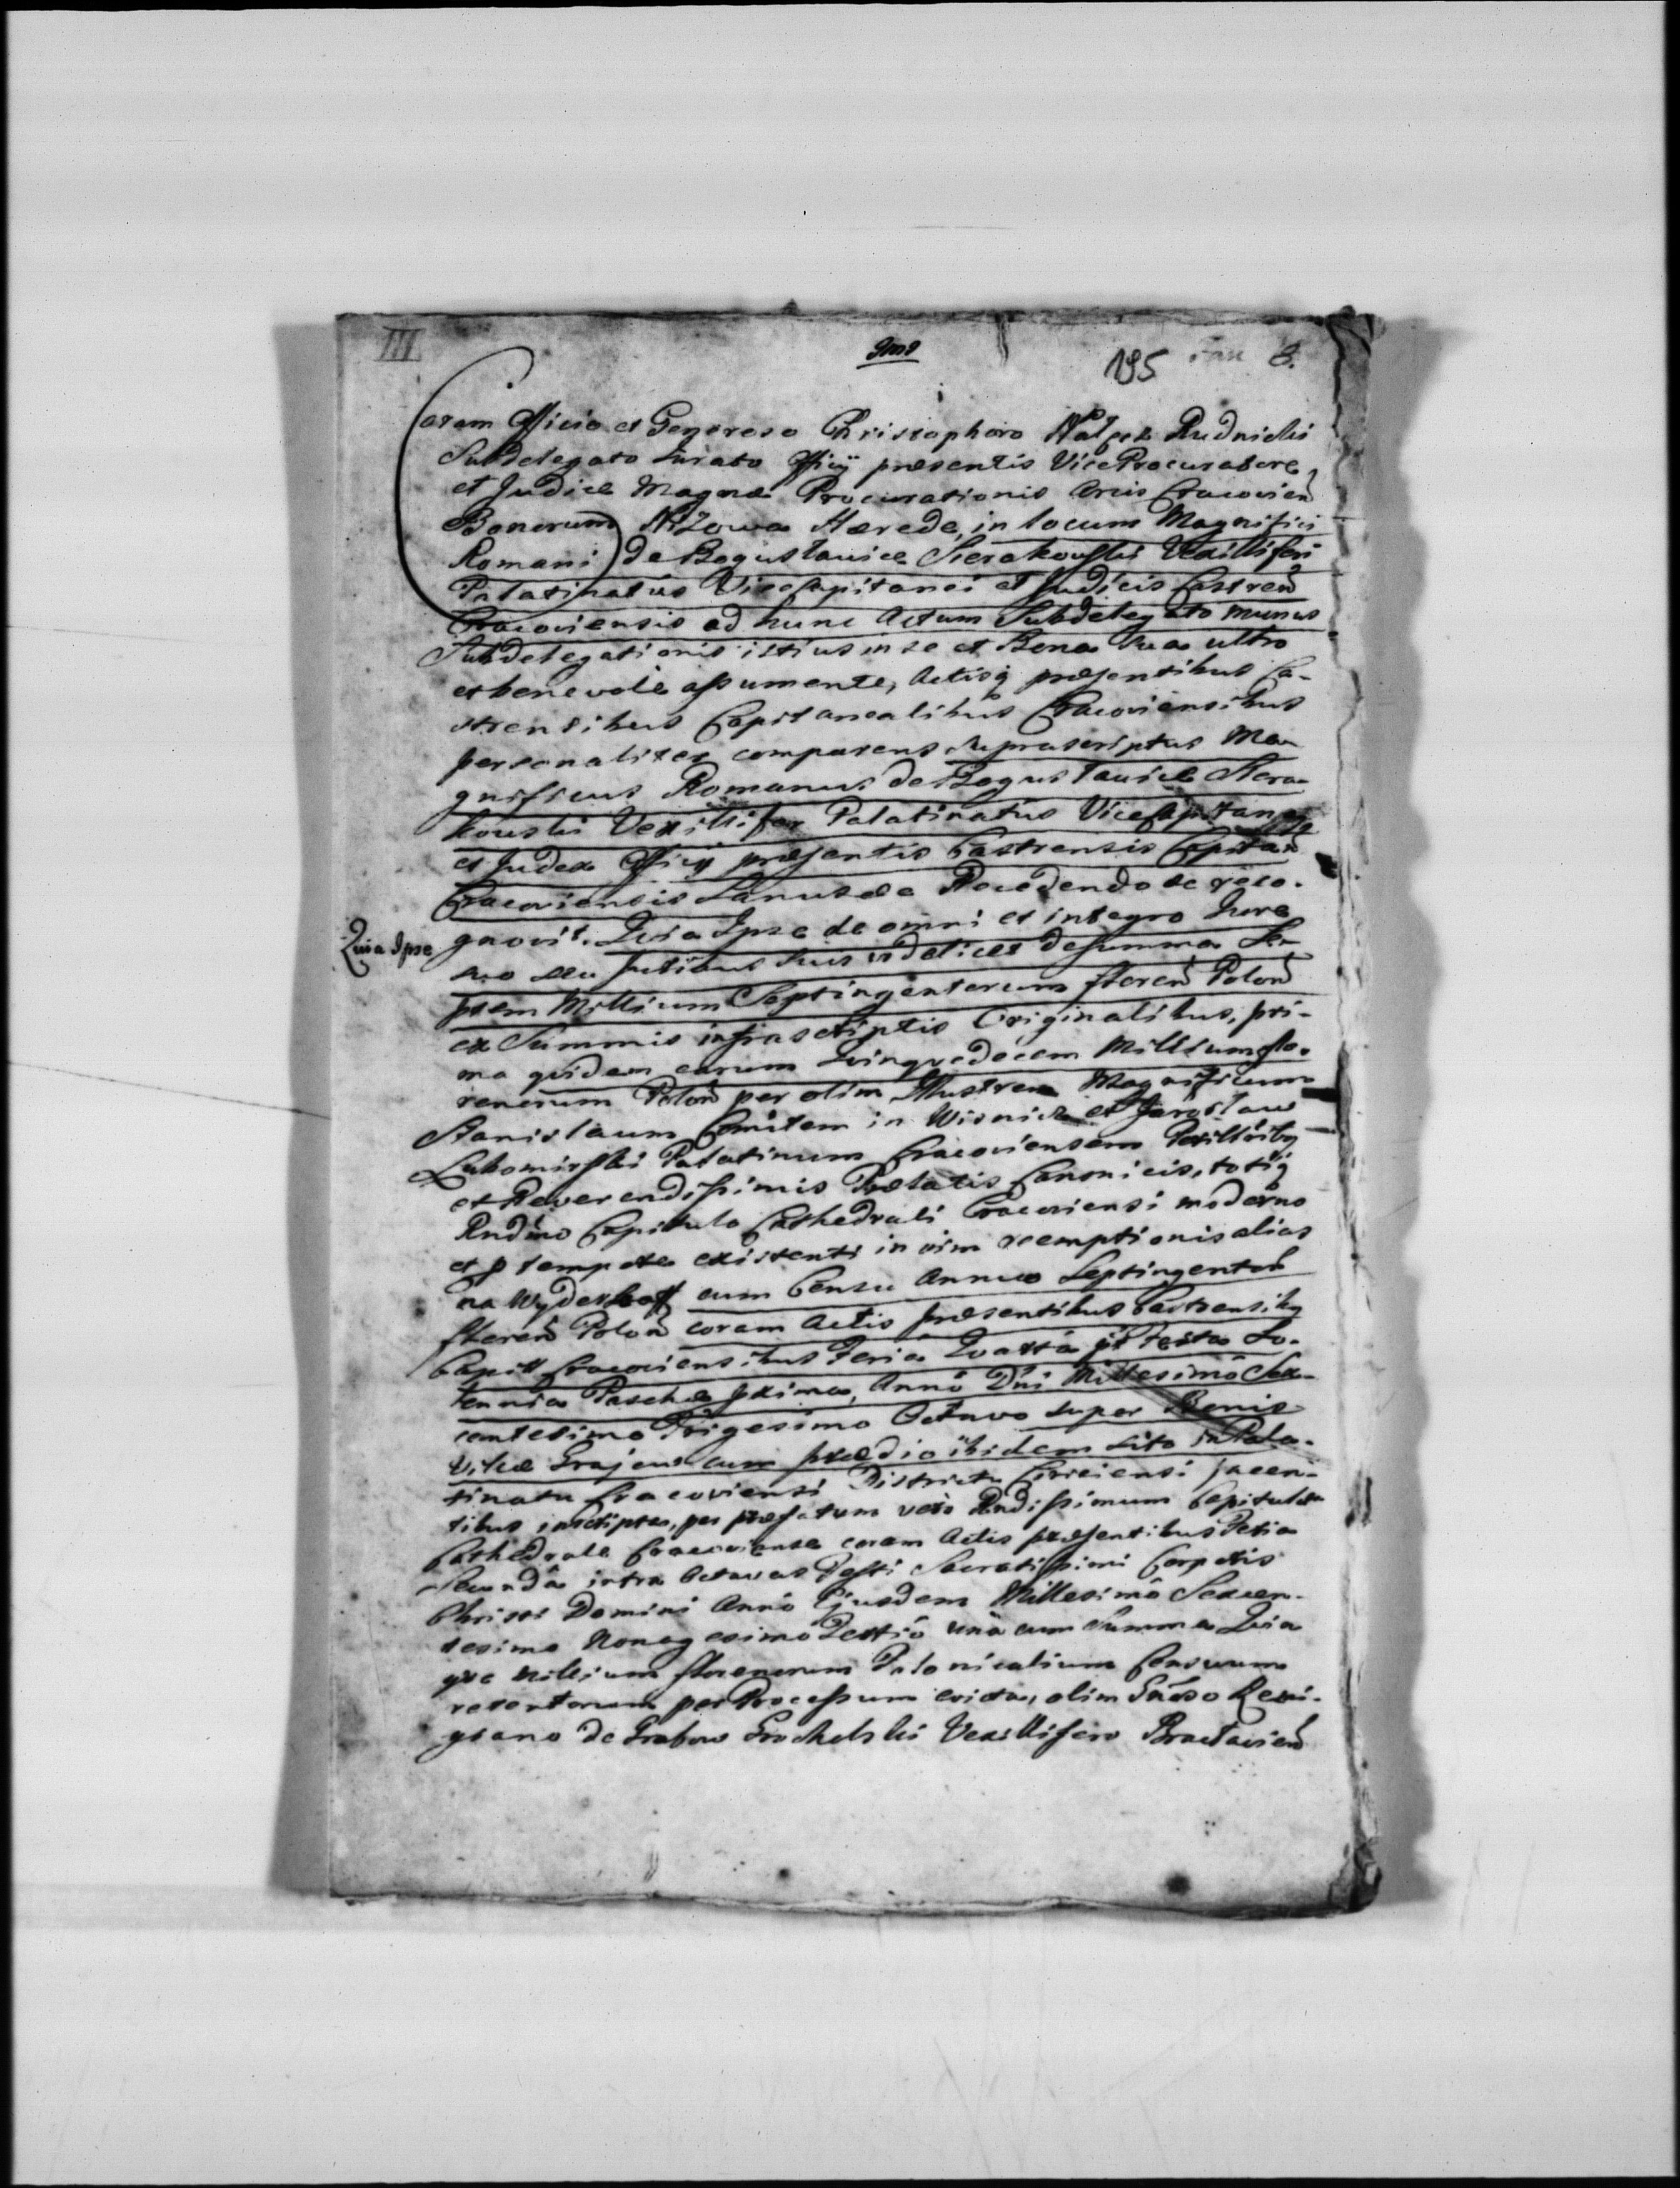 III
195 8.
Coram Officio et Generoso Christophoro Nałęcz Rudnicki
Subdelegato Iurato Officij præsentis ViceProcuratore,
et Judice Magnæ Procurationis Arcis Cracovien̄
Bonorum Hærede, in locum Magnifici
Romani de Bogusławice Sierakowski Vexilliferi
Palatinatus ViceCapitanei et Judicis Castren̄
Cracoviensis ad hunc Actum Subdelegato munus
Subdelegationis istius in se et Bona Sua ultro
et benevole assumente, Actisq̃ præsentibus Ca-
strensibus Capitanealibus Cracoviensibus
personaliter comparens suprascriptus Ma-
gnificus Romanus de Bogusławice Siera-
kowski Vexillifer Palatinatus ViceCapitaneus
et Judex Officij præsentis Castrensis Capitan̄
Cracoviensis Recedendo se reco-
Quia Ipse
gnovit. Quia Ipse de omni et integro Jure
suo seu Juribus suis videlicet de summa Se-
ptem Millium Septingentorum floren̄ Polon̄
ex Summis infrascriptis Originalibus, pri-
ma quidem earum Quinquedecem Millium flo-
renorum Polon̄ per olim Illustrem Magnificum
Stanislaum Comitem in Wisnicz et Jarosław
Lubomirski Palatinum Cracoviensem
et Reverendissimis Prælatis Canonicis, totiq̃
Rndmo Capitulo Cathedrali Cracoviensi moderno
et p tempore existenti in vim reemptionis alias
na Wyderkoff cum Censu Annuo Septingentor̄
floren̄ Polon̄ coram Actis præsentibus Castrensibq
Capitt Cracoviensibus Feria Quarta pt Festa So-
lennia Paschæ proxima, Anno Dni Millesimo Sex-
centesimo Trigesimo Octavo super Bonis
Villæ Grajow cum prædio ibidem sito in Pala-
tinatu Cracoviensi Districtu Szciriciensi jacen-
tibus inscripta, per præfatum vero Rndissimum Capitulum
Cathedrale Cracoviense coram Actis præsentibus Feria
Secunda intra Octavas Festi Sacratissimi Corporis
Christi Domini Anno Ejusdem Millesimo Sexcen-
tesimo Nonagesimo Tertio una cum Summa Quin
que millium florenorum Polonicalium Censuum
retentorum per Processum evicta, olim Gnōso Remi-
giano de Grabow Grocholski Vexillifero Bracłavien̄